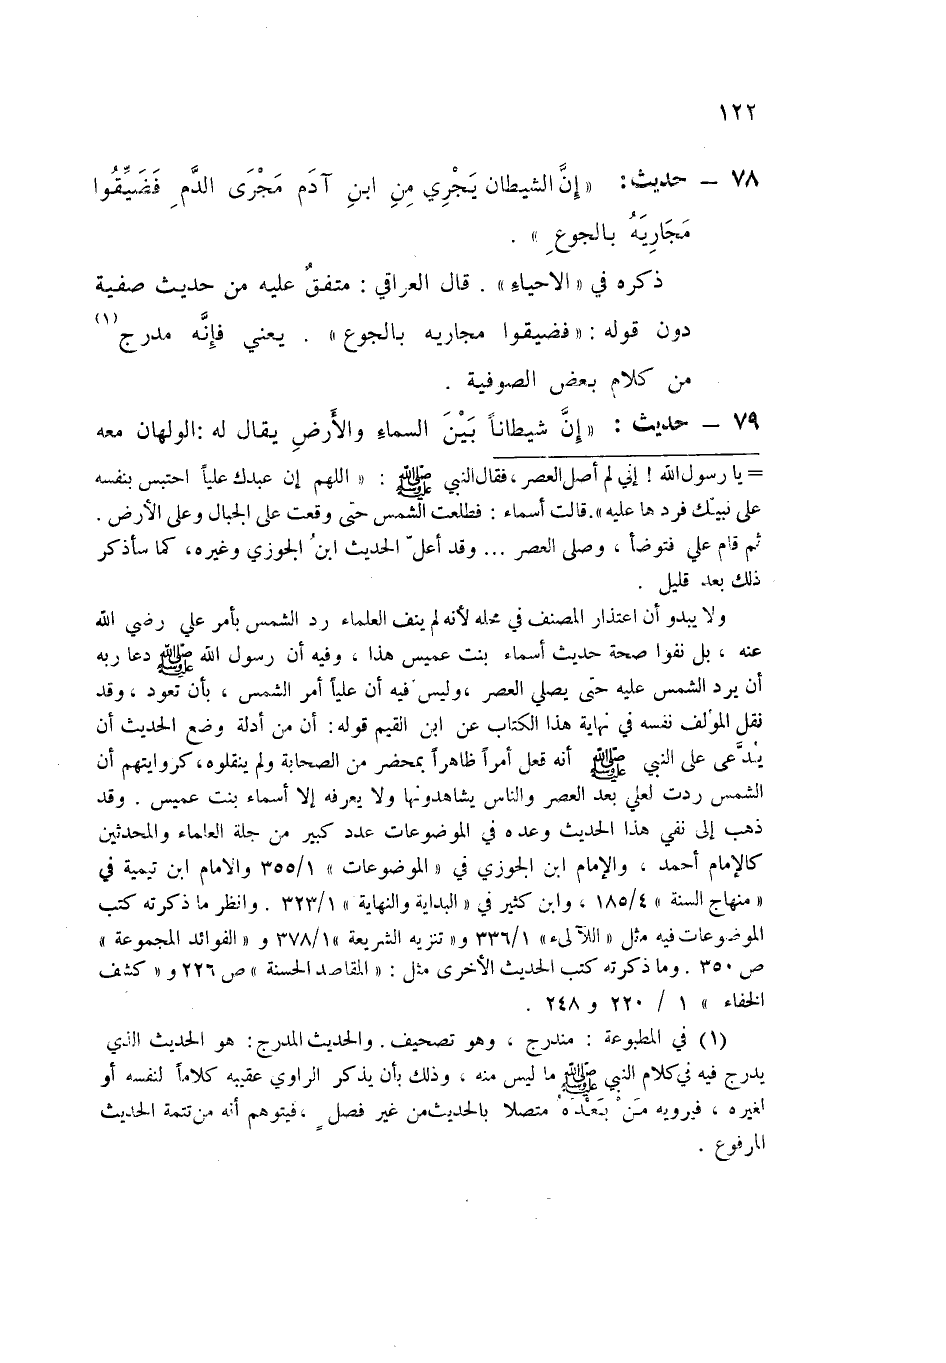 ١٢٢
٧٨ – حديث : « إِنَّ الشيطان يَجْرِي مِنِ ابنِ آدَم مَجْرَى الدَّمِ فَضَيِّقُوا
مَجَارِيَهُ بالجوعِ » .
ذكره في « الاحياء » . قال العراقي : متفقٌ عليه من حديث صفية
دون قوله : « فضيقوا مجاريه بالجوع » . يعني فإنَّه مدرج (١)
من كلام بعض الصوفية .
٧٩ – حديث : « إنَّ شيطاناً بَيْنَ السماء والأَرضِ يقال له : الولهان معه
= يا رسول الله ! إني لم أصل العصر ، فقال النبي ﷺ : « اللهم إن عبدك علياً احتبس بنفسه
على نبيك فرد ها عليه » . قالت أسماء : فطلعت الشمس حتى وقعت على الجبال وعلى الأرض .
ثم قام علي فتوضأ ، وصلى العصر ... وقد أعلّ الحديث ابنُ الجوزي وغيره ، كما سأذكر
ذلك بعد قليل .
ولا يبدو أن اعتذار المصنف في محله لأنه لم ينف العلماء رد الشمس بأمر علي رضي الله
عنه ، بل نفوا صحة حديث أسماء بنت عميس هذا ، وفيه أن رسول الله ﷺ دعا ربه
أن يرد الشمس عليه حتى يصلي العصر ، وليس فيه أن علياً أمر الشمس ، بأن تعود ، وقد
نقل المؤلف نفسه في نهاية هذا الكتاب عن ابن القيم قوله : أن من أدلة وضع الحديث أن
يُدَّعى على النبي ﷺ أنه فعل أمراً ظاهراً بمحضر من الصحابة ولم ينقلوه ، كروايتهم أن
الشمس ردت لعلي بعد العصر والناس يشاهدونها ولا يعرفه إلا أسماء بنت عميس . وقد
ذهب إلى نفي هذا الحديث وعده في الموضوعات عدد كبير من جلة العلماء والمحدثين
كالإمام أحمد ، والإمام ابن الجوزي في « الموضوعات » ٣٥٥/١ والامام ابن تيمية في
« منهاج السنة » ١٨٥/٤ ، وابن كثير في « البداية والنهاية » ٣٢٣/١ . وانظر ما ذكرته كتب
الموضوعات فيه مثل « اللآلىء » ٣٣٦/١ و« تنزيه الشريعة » ٣٧٨/١ و « الفوائد المجموعة »
ص ٣٥٠ . وما ذكرته كتب الحديث الأخرى مثل : « المقاصد الحسنة » ص ٢٢٦ و « كشف
الخفاء » ١ / ٢٢٠ و ٢٤٨ .
(١) في المطبوعة : مندرج ، وهو تصحيف . والحديث المدرج : هو الحديث الذي
يدرج فيه في كلام النبي ﷺ ما ليس منه ، وذلك بأن يذكر الراوي عقيبه كلاماً لنفسه أو
لغيره ، فيرويه مَنْ بَعْدَهُ متصلا بالحديث من غير فصلٍ ، فيتوهم أنه من تتمة الحديث
المرفوع .